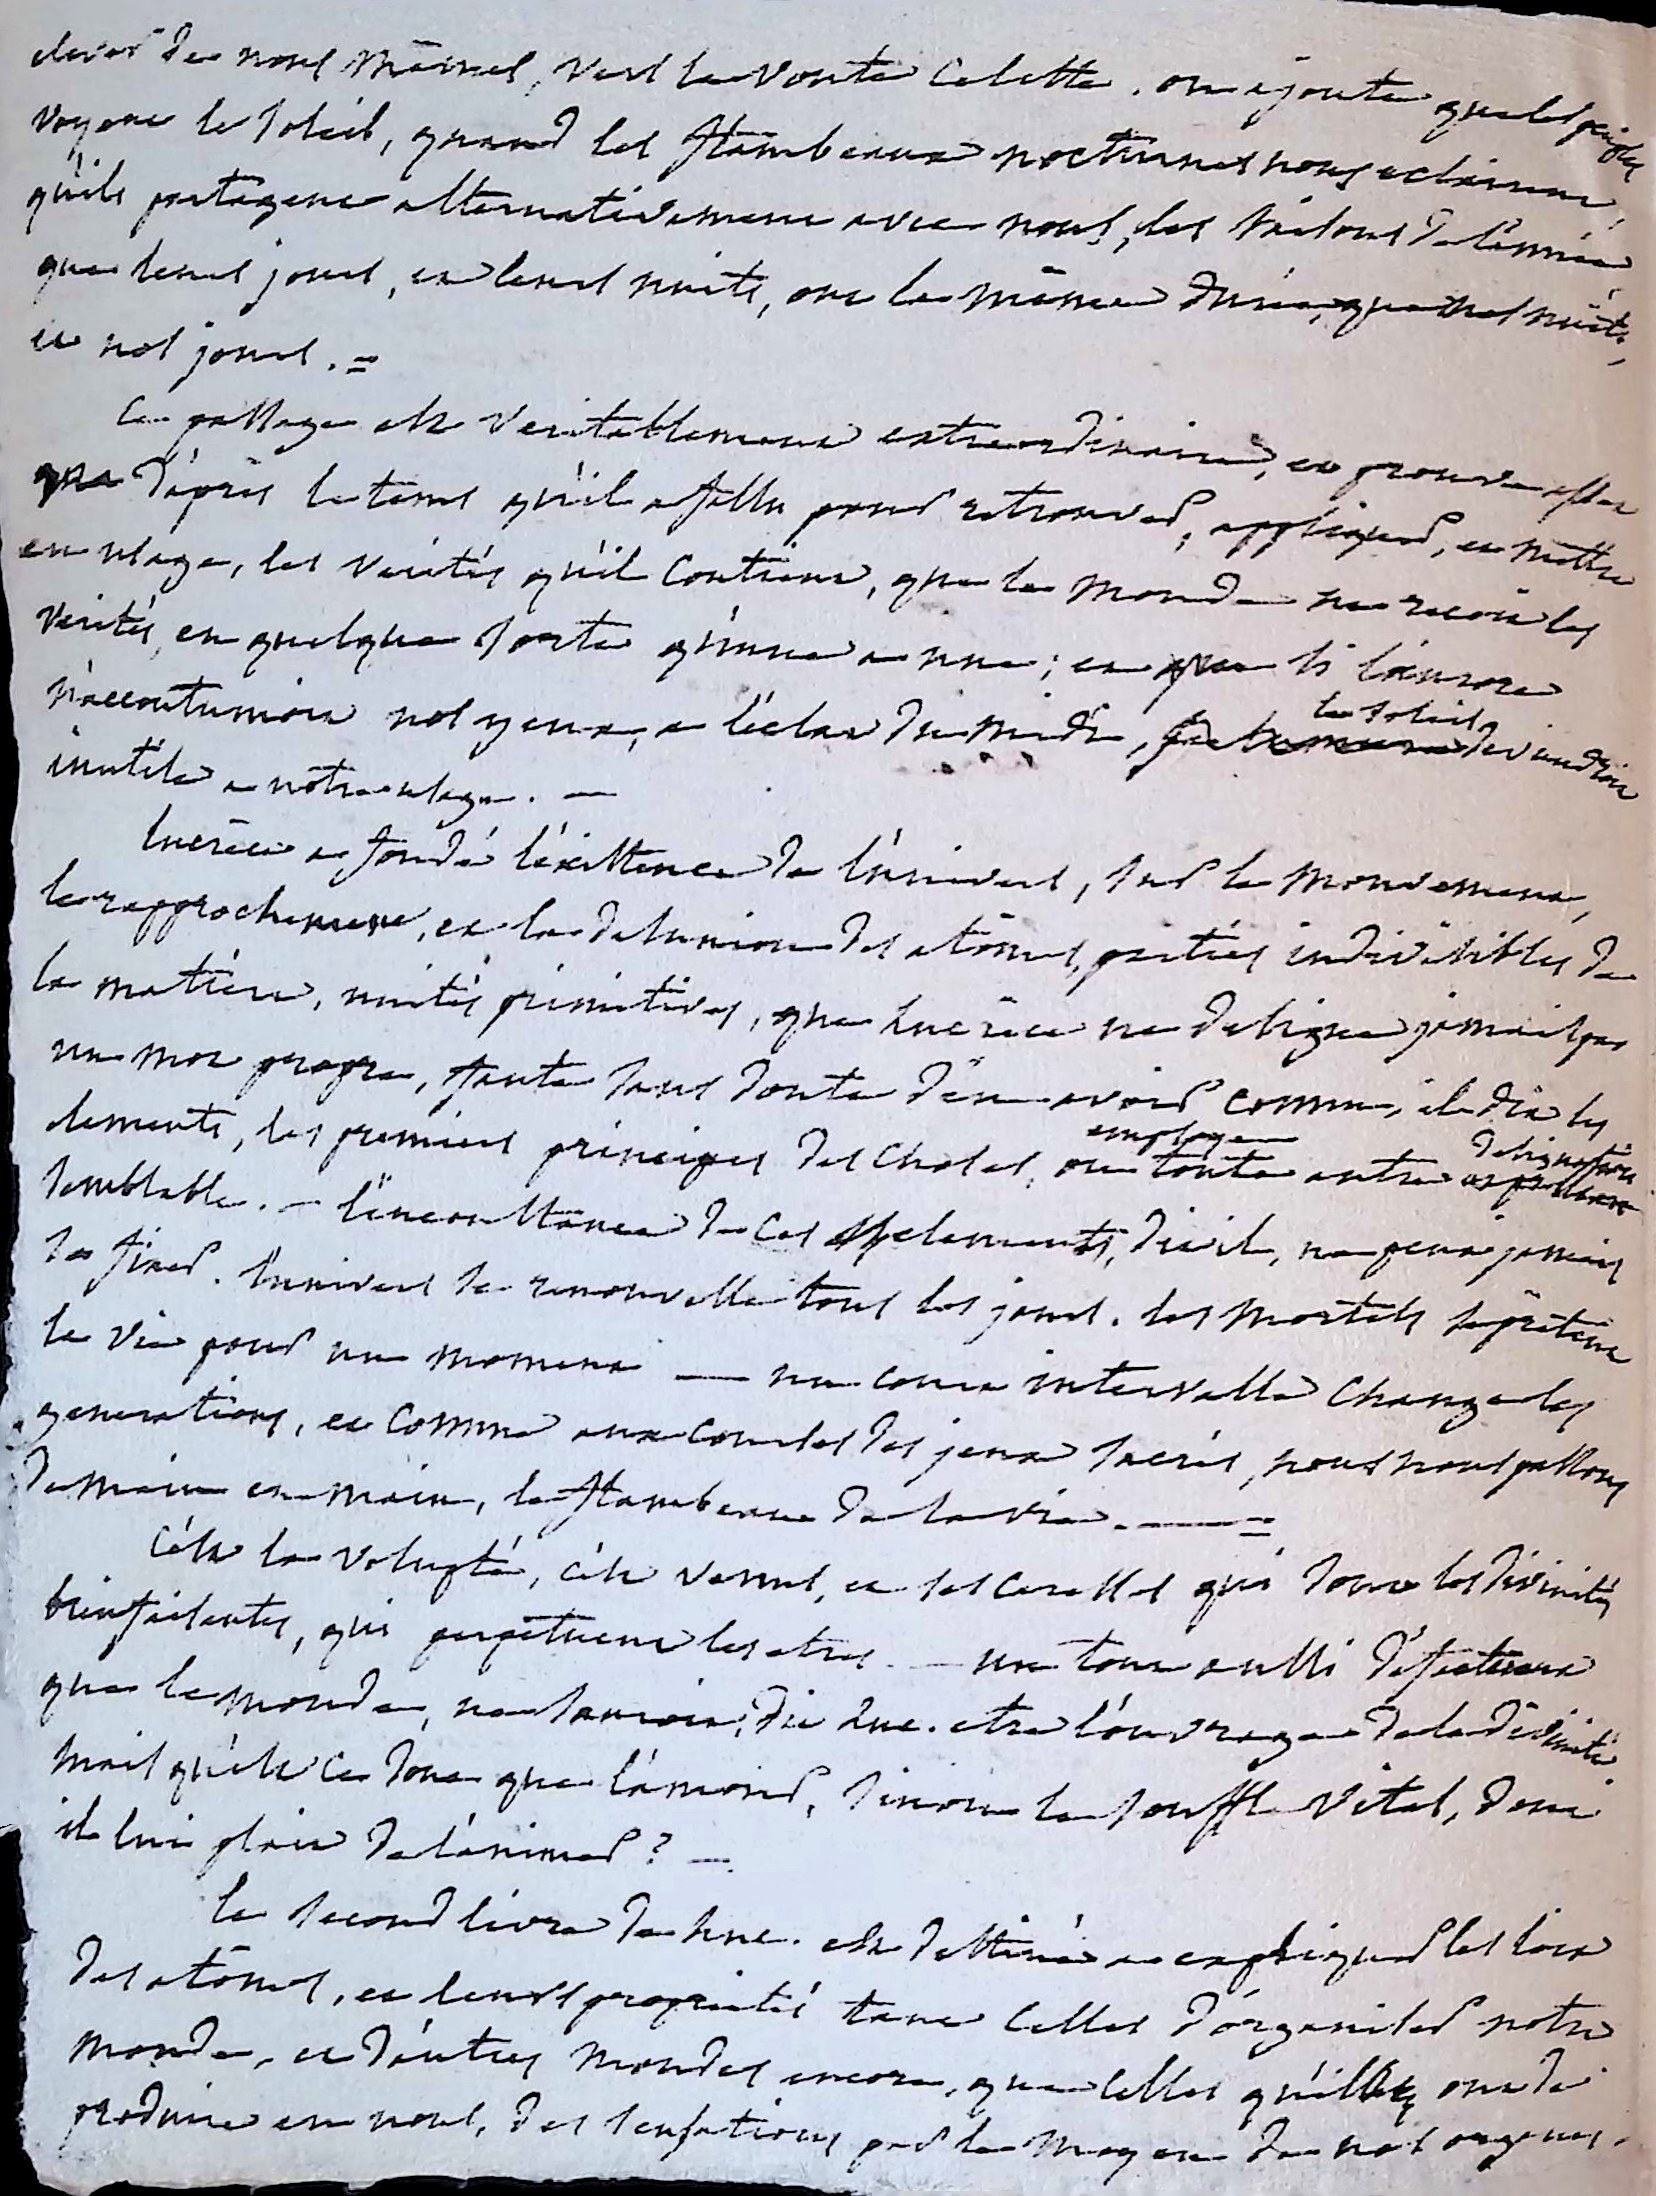 elever de nous mêmes, vers la voute celeste. on ajoute que les peuples
voyent le soleil, quand les flambeaux nocturnes nous eclairent,
qu'ils partagent alternativement avec nous, les saisons de l'année,
que leurs jours, et leurs nuits, ont la même durée, que nos nuits,
et nos jours. =
Ce passage est veritablement extraordinaire, et prouve assez
que d'après le tems qu'il a fallu pour retrouver, appliquer, et mettre
en usage, les verités qu'il contient, que le monde ne recoit les
verités, en quelque sorte qu'une a une; et que si l'aurore
n'accoutumoit nos yeux, a l'éclat du midi, le soleil deviendroit
inutile a notre usage. —
Lucrèce a fondé l'existence de l'univers, sur le mouvement,
le rapprochement, et la desunion des atômes, parties indivisibles de
la matière, unités primitives, que Lucrèce ne designe jamais par
un mot propre, faute sans doute d'en avoir connu, il dit les
elements, les premiers principes des choses, ou employe toute autre designation
semblable. — l'inconstance de ces elements, dit il, ne peut jamais
se fixer. l'univers se renouvelle tous les jours. les mortels se prêtent
la vie pour un moment — un court intervalle change les
generations, et comme aux courses des jeux sacrés, nous nous passons
de main en main, le flambeau de la vie. — =
C'est la volupté, c'est venus, et ses caresses qui sont les divinités
bienfaisantes, qui perpetuent les etres. — un tout aussi défectueux
que le monde, ne sauroit, dit Luc. etre l'ouvrage de la divinité.
Mais qu'est ce donc que l'amour, sinon le souffle vital, dont
il lui plait de l'animer? —
Le second livre de Luc. est destiné a expliquer les loix
des atômes, et leurs proprietés tant celles d'organiser notre
monde, et d'autres mondes encore, que celles qu'ills ont de
produire en nous, des sensations par le moyen de nos organes.